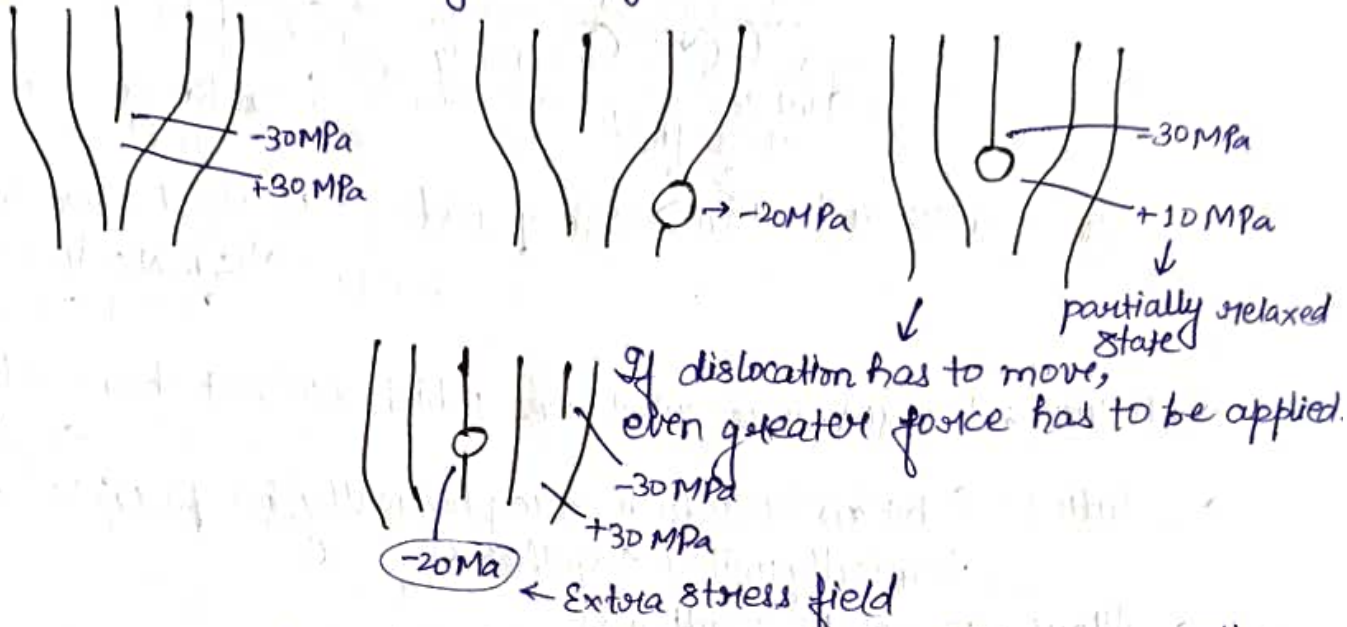 -30MPa
+30MPa
→ -20MPa
-30MPa
+10MPa
↓
partially relaxed
state
↓
If dislocation has to move,
even greater force has to be applied.
-30 MPa
+30 MPa
-20Ma
← Extra stress field